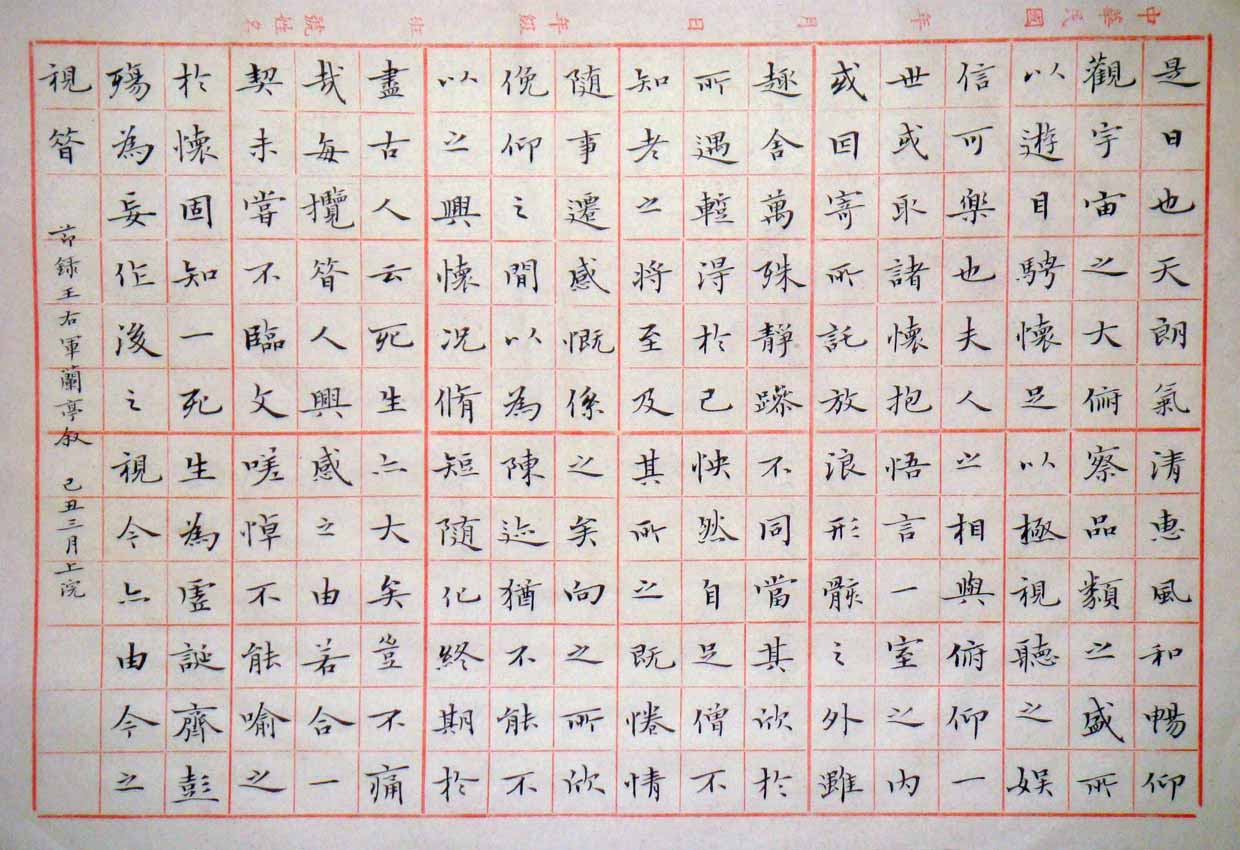 中華民國 年 月 日 年級 班 號姓名
是日也天朗氣清惠風和暢仰
觀宇宙之大俯察品類之盛所
以遊目騁懷足以極視聽之娛
信可樂也夫人之相與俯仰一
世或取諸懷抱悟言一室之內
或因寄所託放浪形骸之外雖
趣舍萬殊靜躁不同當其欣於
所遇暫得於己怏然自足僧不
知老之將至及其所之既惓情
隨事遷感慨係之矣向之所欣
俛仰之間以為陳迹猶不能不
以之興懷況脩短隨化終期於
盡古人云死生亦大矣豈不痛
哉每攬昝人興感之由若合一
契未嘗不臨文嗟悼不能喻之
於懷固知一死生為虛誕齊彭
殤為妄作後之視今亦由今之
視昝
節錄王右軍蘭亭敘 己丑三月上浣